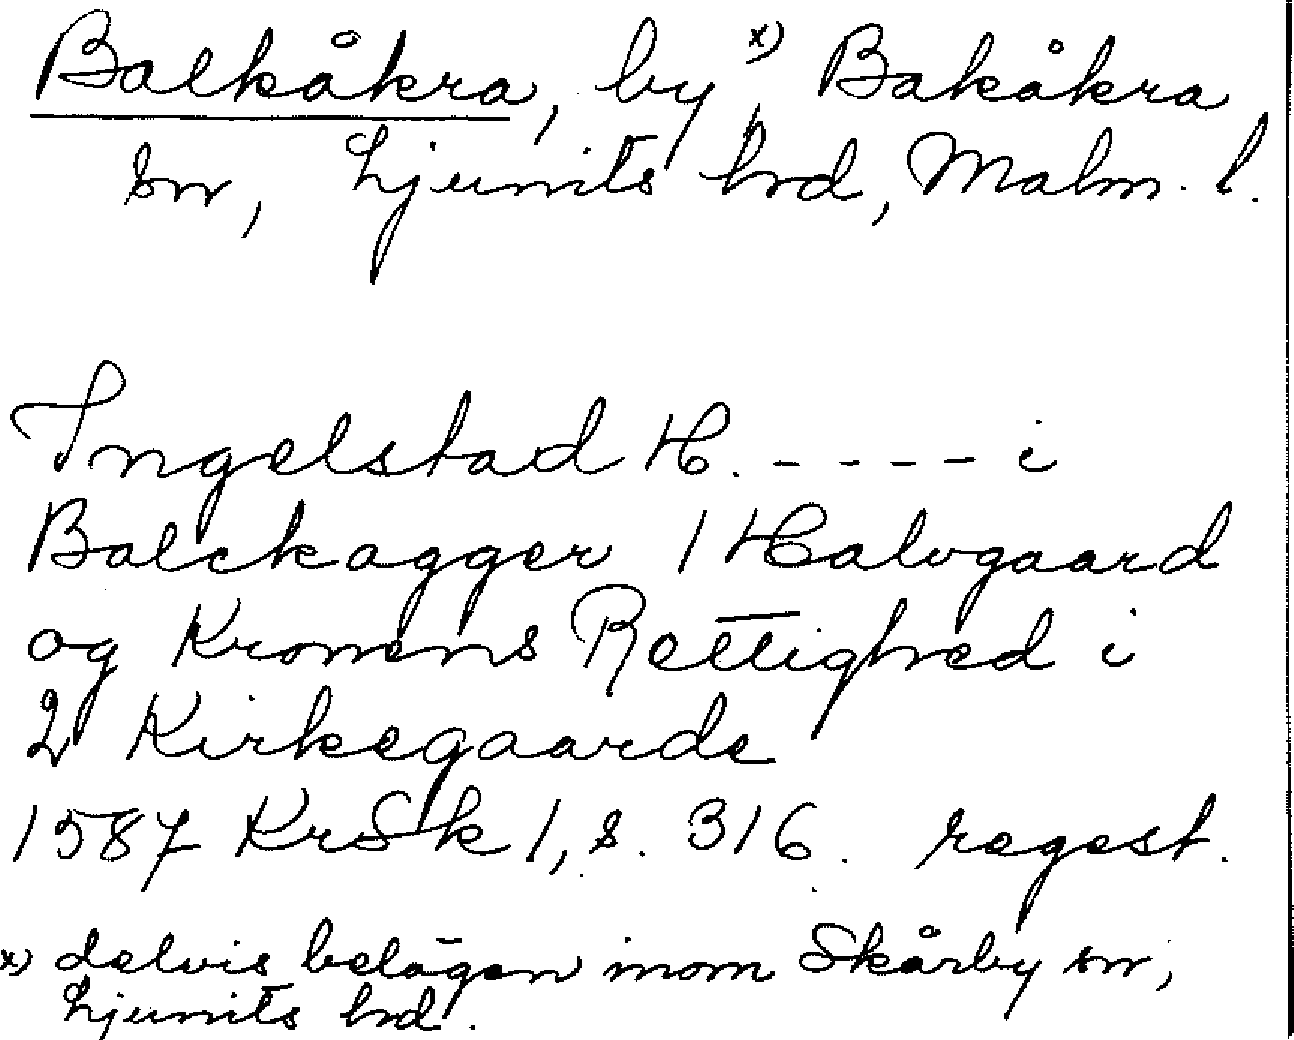 Balkåkra, by x) Bakåkra
sn, Ljunits hrd, Malm. l.
Ingelstad H. - - - - i
Balckagger 1 Halvgaard
og Kronens Rettighed i
2 Kirkegaarde
1587 KrSk 1, s. 316. regest.
x) delvis belägen inom Skårby sn,
Ljunits hrd.